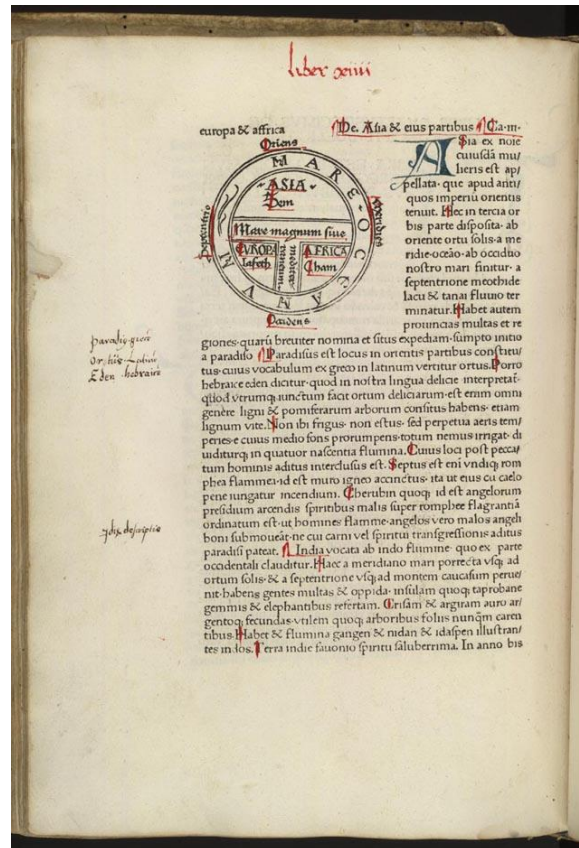 liber xiiii
europa & affrica
¶De. Asia & eius partibus ¶Ca.m.
Oriens
MARE OCEANUM
ASIA
Sem
Mare magnum siue
mediterraneum
EUROPA
Iafeth
AFRICA
Cham
Septentrio
Meridies
Occidens
ASia ex noīe
cuiusdā mu/
lieris est ap/
pellata. que apud anti/
quos imperiū orientis
tenuit. Hec in tercia or
bis parte disposita. ab
oriente ortu solis. a me
ridie. oceāo. ab occiduo
nostro mari finitur. a
septentrione meothide
lacu & tanai fluuio ter
minatur. Habet autem
prouincias multas et re
giones. quarū breuiter nomina et situs expediam. sumpto initio
a paradiso ¶Paradisus est locus in orientis partibus constitu/
tus. cuius vocabulum ex greco in latinum vertitur ortus. Porro
hebraice eden dicitur. quod in nostra lingua delicie interpretat̄.
quod vtrumq; iunctum facit ortum deliciarum. est enim omni
genere ligni & pomiferarum arborum consitus habens. etiam
lignum vite. Non ibi frigus. non estus. sed perpetua aeris tem/
peries. e cuius medio fons prorumpens. totum nemus irrigat. di
uiditurq; in quatuor nascentia flumina. Cuius loci post pecca/
tum hominis aditus interclusus est. Septus est eni vndiq; rom
phea flammea. id est muro igneo accinctus. ita ut eius cū celo
pene iungatur incendium. Cherubin quoq; id est angelorum
presidium arcendis spiritibus malis super romphee flagrantiā
ordinatum est. ut homines flamme. angelos vero malos angeli
boni submoueāt. ne cui carni vel spiritui transgressionis aditus
paradisi pateat. ¶India vocata ab indo flumine. quo ex parte
occidentali clauditur. Haec a meridiano mari porrecta vsq; ad
ortum solis. & a septentrione vsq; ad montem caucasum perue/
nit. habens gentes multas & oppida. insulam quoq; taprobane
gemmis & elephantibus refertam. Crisam & argiram auro ar/
gentoq; fecundas. vtilem quoq; arboribus foliis nunqm̄ caren
tibus. Habet & flumina gangen & nidan & idaspen illustran/
tes indos. Terra indie fauonio spiritu saluberrima. In anno bis
paradis. grece
Ortus. Latine
Eden. hebraice
Indie descriptio